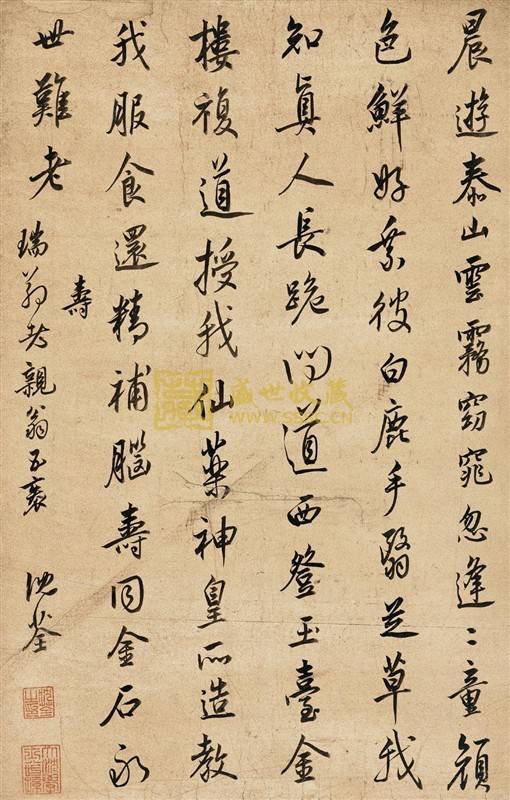 晨遊泰山雲霧窈窕忽逢二童顏
色鮮好乘彼白鹿手翳芝草我
知真人長跪問道西登玉臺金
樓複道授我仙藥神皇所造教
我服食還精補腦壽同金石永
世難老
壽
瑞翁老親翁五袠
沈荃
盛世收藏
WWW.SSSC.CN